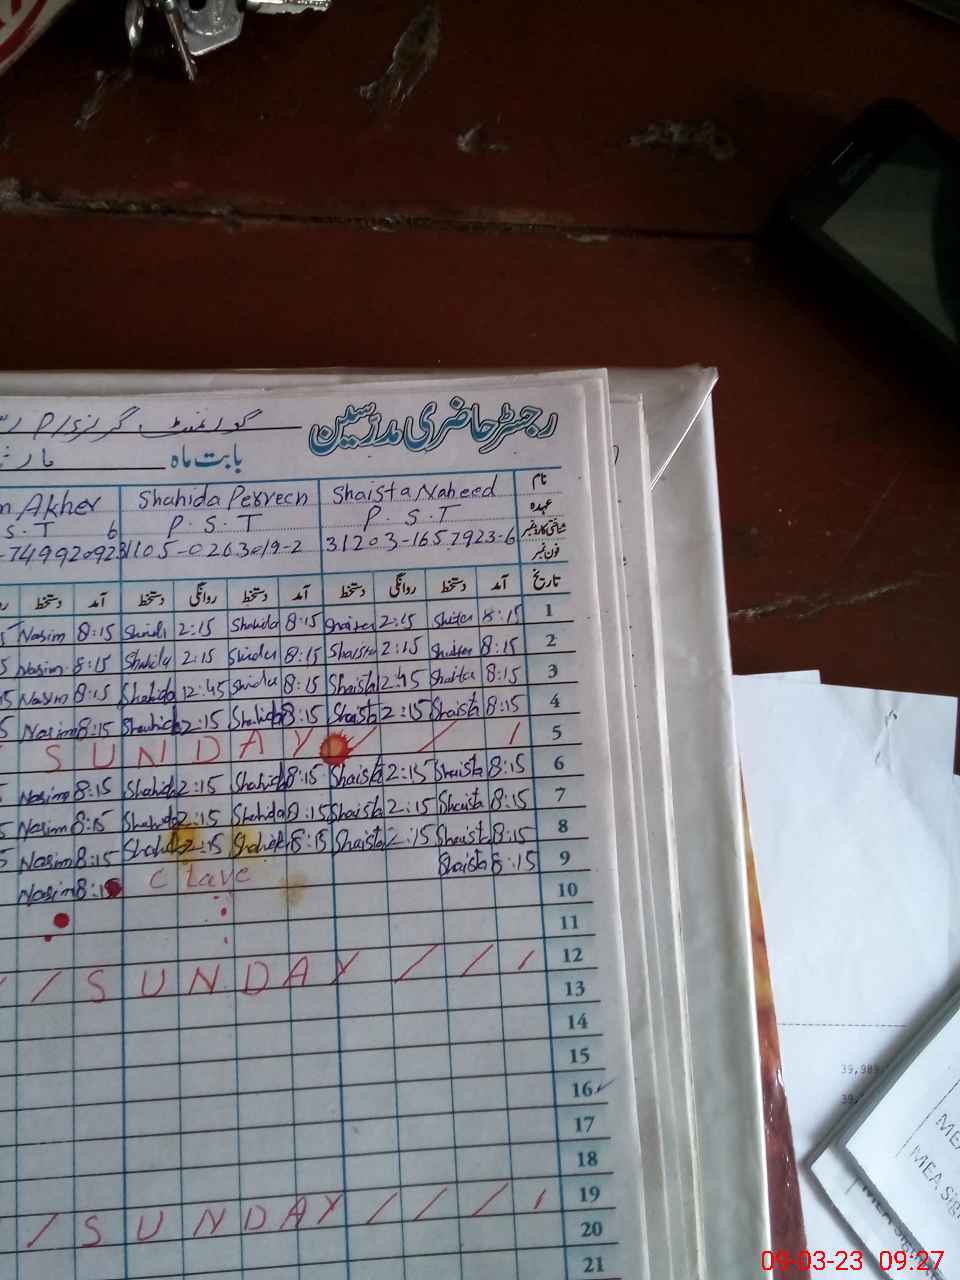 رجسٹر حاضری مدرسین گورنمنٹ گرلز P/S
بابت ماہ
نام Shaista Naheed Shahida Perveen Akher
عہدہ P.S.T P.S.T S.T
شناختی کارڈ نمبر 31203-1657923-6 31105-0263019-2
فون نمبر
تاریخ آمد دستخط روانگی دستخط آمد دستخط روانگی دستخط آمد دستخط
1 8:15 Shaista 2:15 Shaista 8:15 Shahida 2:15 Shahida 8:15 Nasim
2 8:15 Shaista 2:15 Shaista 8:15 Shahida 2:15 Shahida 8:15 Nasim
3 8:15 Shaista 12:45 Shaista 8:15 Shahida 12:45 Shahida 8:15 Nasim
4 8:15 Shaista 2:15 Shaista 8:15 Shahida 2:15 Shahida 8:15 Nasim
5 SUNDAY / / /
6 8:15 Shaista 2:15 Shaista 8:15 Shahida 2:15 Shahida 8:15 Nasim
7 8:15 Shaista 2:15 Shaista 8:15 Shahida 2:15 Shahida 8:15 Nasim
8 8:15 Shaista 2:15 Shaista 8:15 Shahida 2:15 Shahida 8:15 Nasim
9 8:15 Shaista C Lave 8:15 Nasim
10
11
12 / SUNDAY / / /
13
14
15
16
17
18
19 / SUNDAY / / / /
20
21
39,989
MEA Sig
09-03-23 09:27